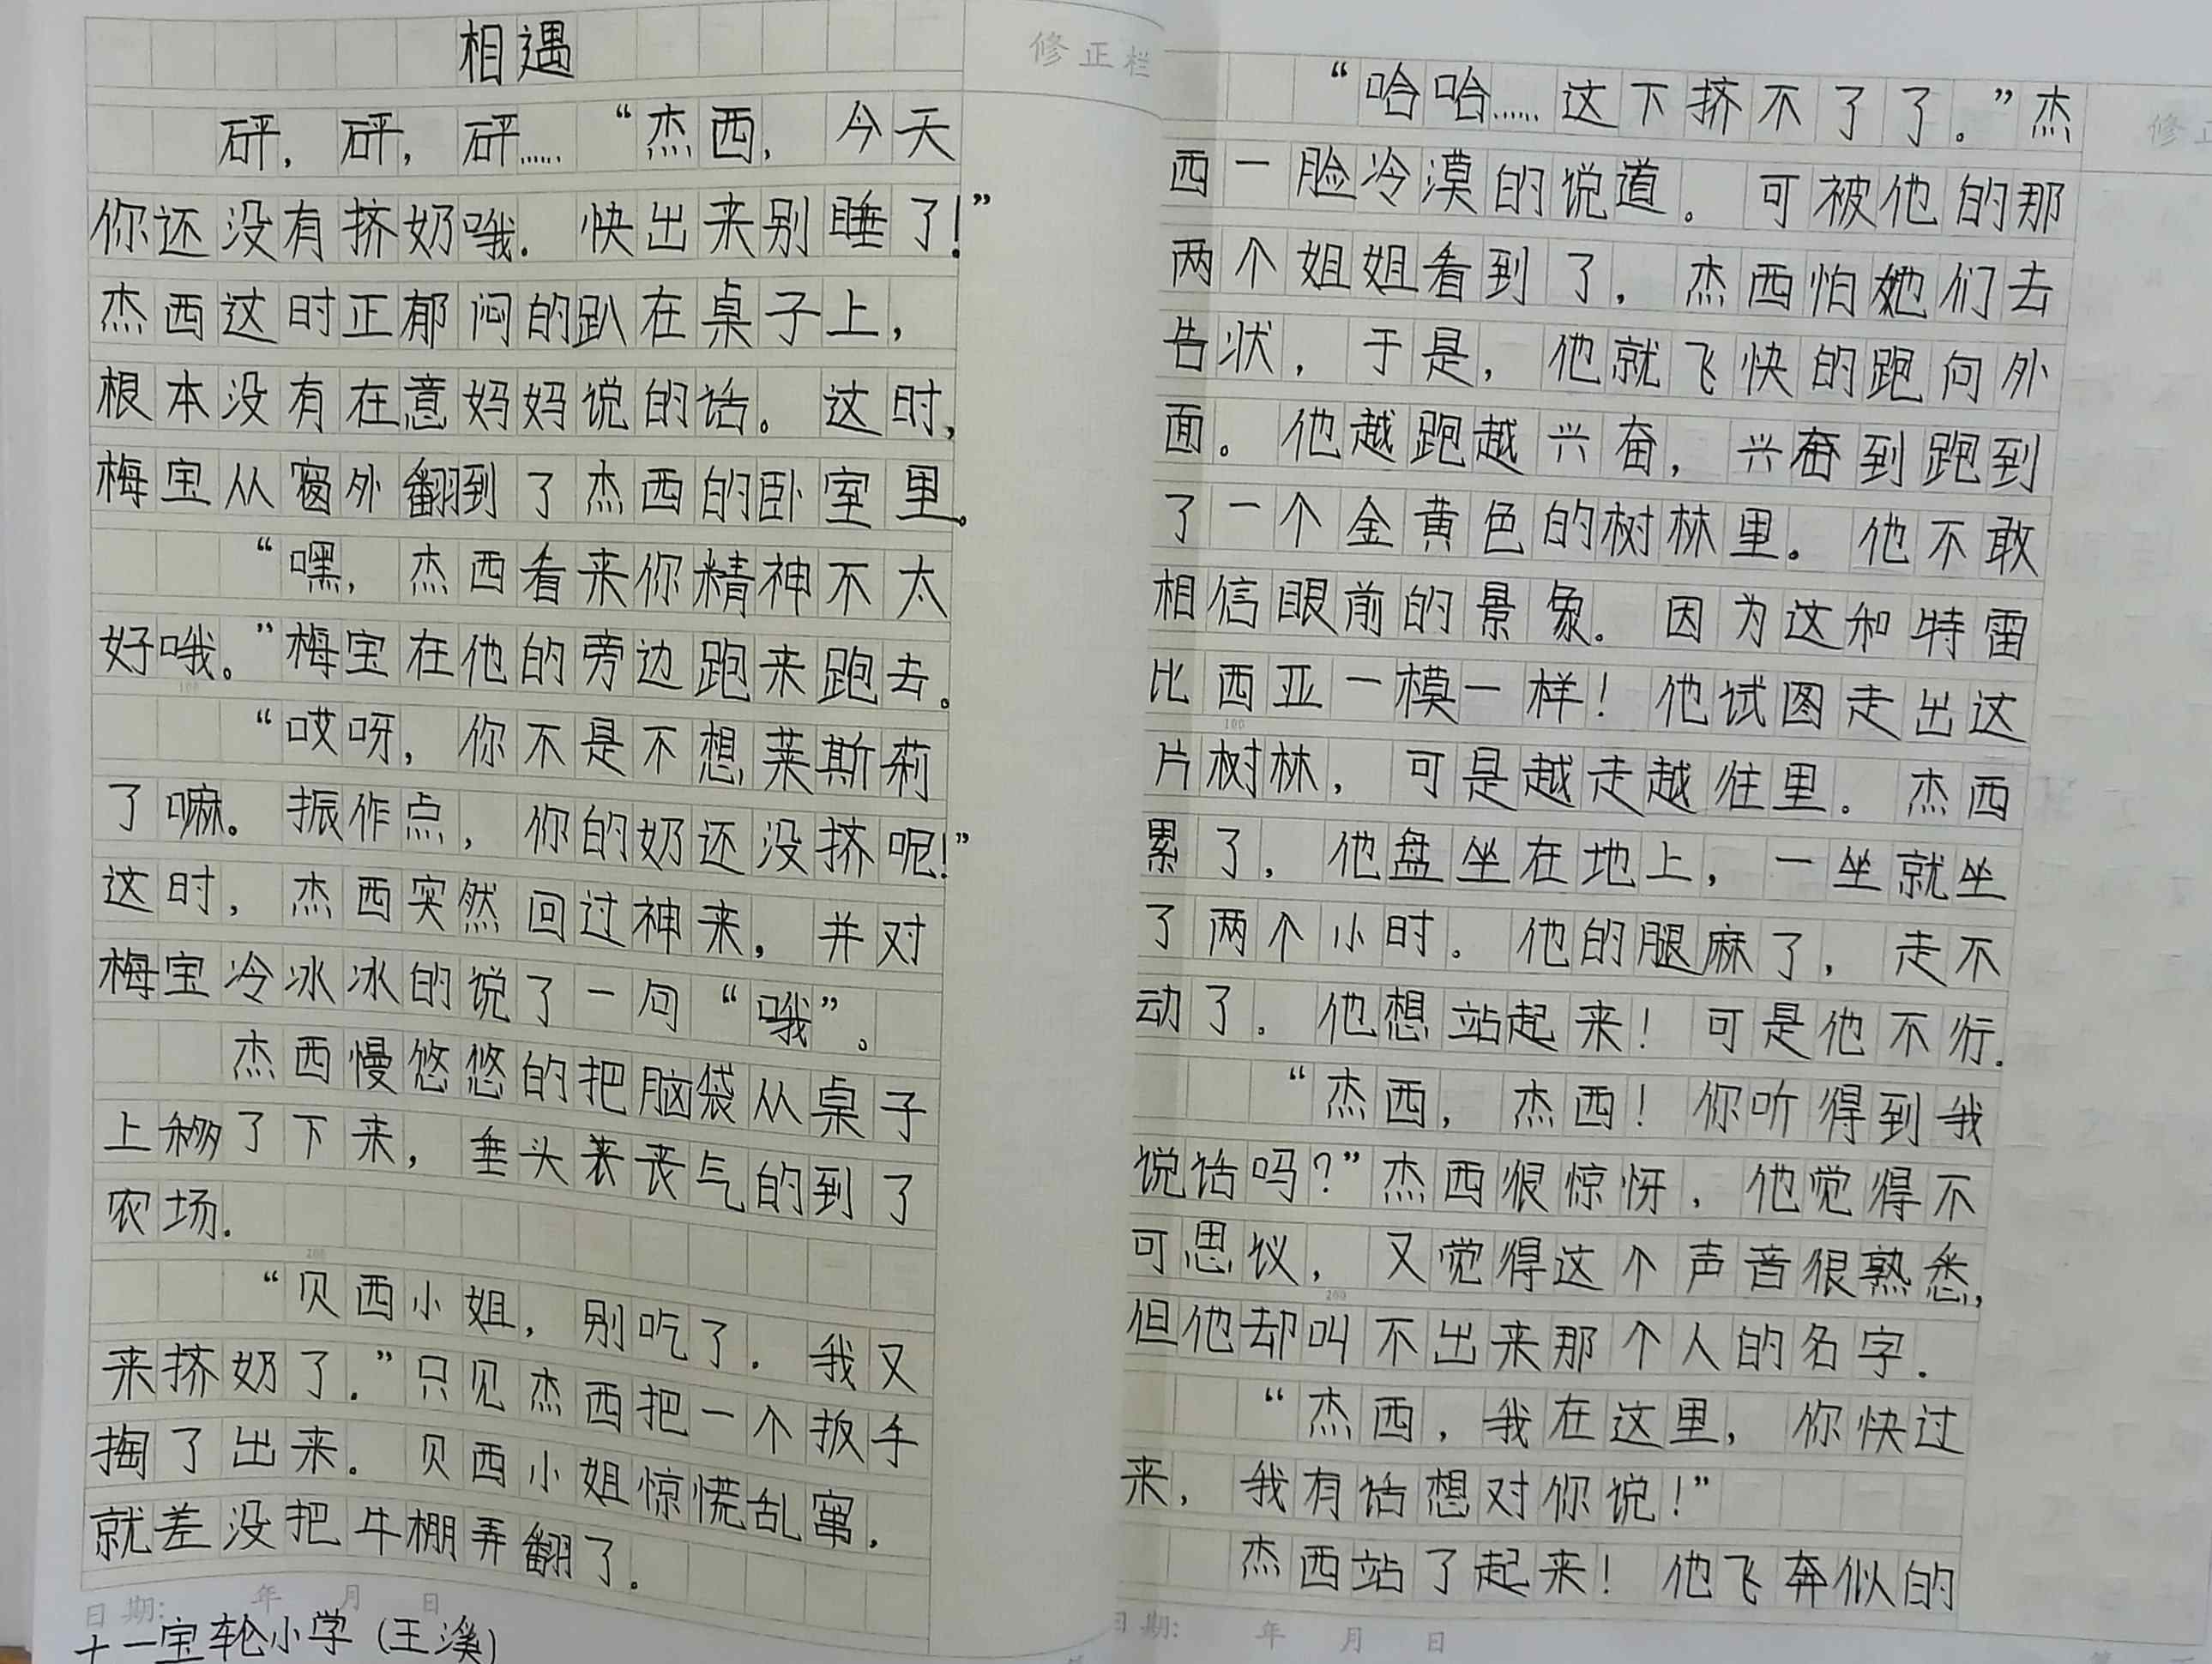 相遇
修正栏
砰，砰，砰……“杰西，今天
你还没有挤奶哦．快出来别睡了！”
杰西这时正郁闷的趴在桌子上，
根本没有在意妈妈说的话。这时，
梅宝从窗外翻到了杰西的卧室里。
“嘿，杰西看来你精神不太
好哦。”梅宝在他的旁边跑来跑去。
100
“哎呀，你不是不想莱斯莉
了嘛。振作点，你的奶还没挤呢！”
这时，杰西突然回过神来，并对
梅宝冷冰冰的说了一句“哦”。
杰西慢悠悠的把脑袋从桌子
上移了下来，垂头丧丧气的到了
农场．
200
“贝西小姐，别吃了．我又
来挤奶了．”只见杰西把一个扳手
掏了出来。贝西小姐惊慌乱窜．
就差没把牛棚弄翻了．
日期： 年 月 日
十一宝轮小学（王溪）
“哈哈……这下挤不了了．”杰
修正
西一脸冷漠的说道。可被他的那
两个姐姐看到了，杰西怕她们去
告状，于是，他就飞快的跑向外
面。他越跑越兴奋，兴奋到跑到
了一个金黄色的树林里。他不敢
相信眼前的景象．因为这和特雷
比西亚一模一样！他试图走出这
100
片树林，可是越走越往里．杰西
累了，他盘坐在地上，一坐就坐
了两个小时．他的腿麻了，走不
动了．他想站起来！可是他不行．
“杰西，杰西！你听得到我
说话吗？”杰西很惊讶，他觉得不
可思议，又觉得这个声音很熟悉，
200
但他却叫不出来那个人的名字．
“杰西，我在这里，你快过
来，我有话想对你说！”
杰西站了起来！他飞奔似的
日期： 年 月 日